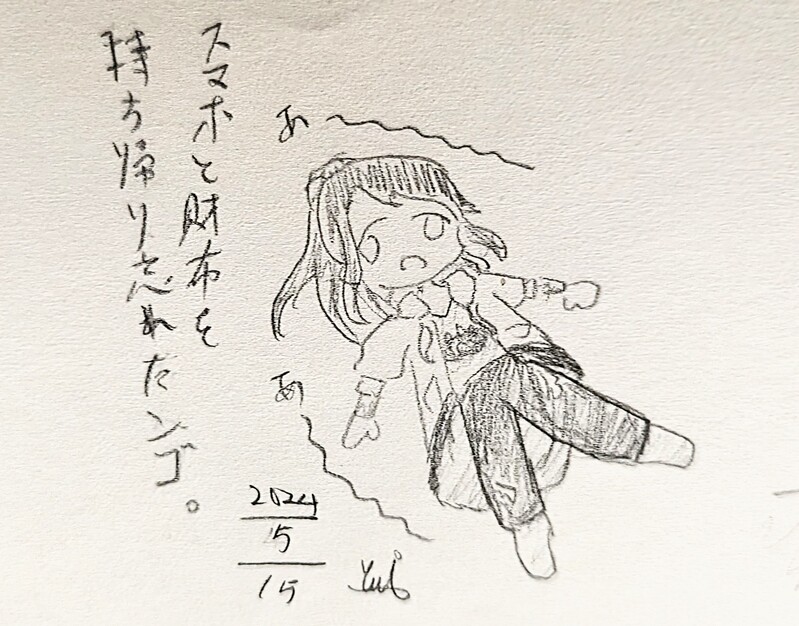 スマホと財布を
持ち帰り忘れたンゴ。
あ
あ
2024
5
15
Yui